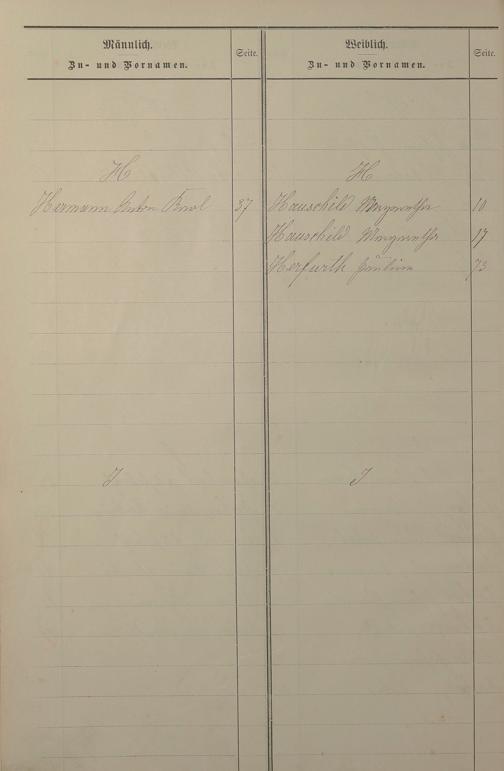 Männlich.
Zu- und Vornamen.
Seite.
Weiblich.
Zu- und Vornamen.
Seite.
H
H
Hermann Anton Karl 37
Hauschild Margaretha 10
Hauschild Margaretha 17
Herfurth Paulina 73
J
J